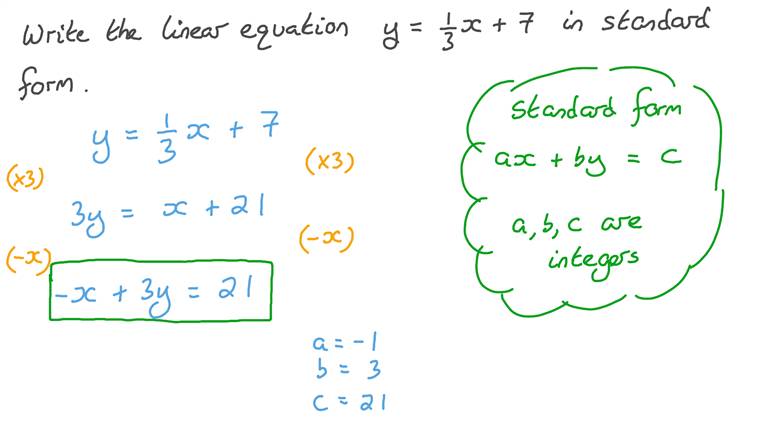 Write the linear equation y = 1/3 x + 7 in standard
form.
y = 1/3 x + 7
(×3) (×3)
3y = x + 21
(-x) (-x)
-x + 3y = 21
a = -1
b = 3
c = 21
standard form
ax + by = c
a, b, c are
integers